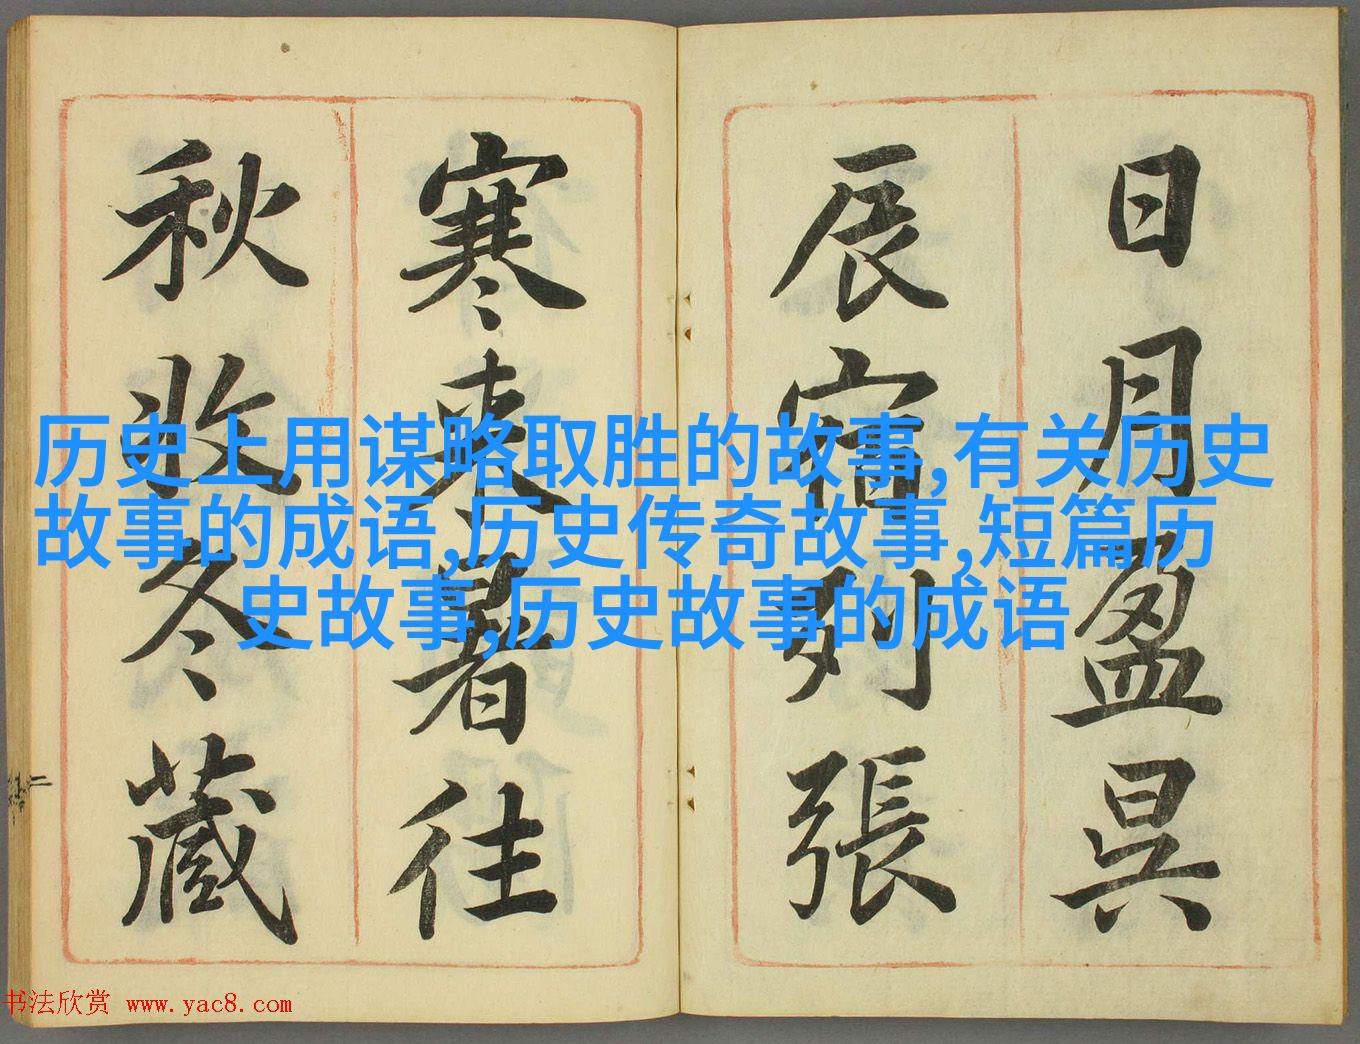 日月盈昃
辰宿列張
寒来暑往
秋收冬藏
历史上用谋略取胜的故事,有关历史
故事的成语,历史传奇故事,短篇历
史故事,历史故事的成语
书法欣赏 www.yac8.com